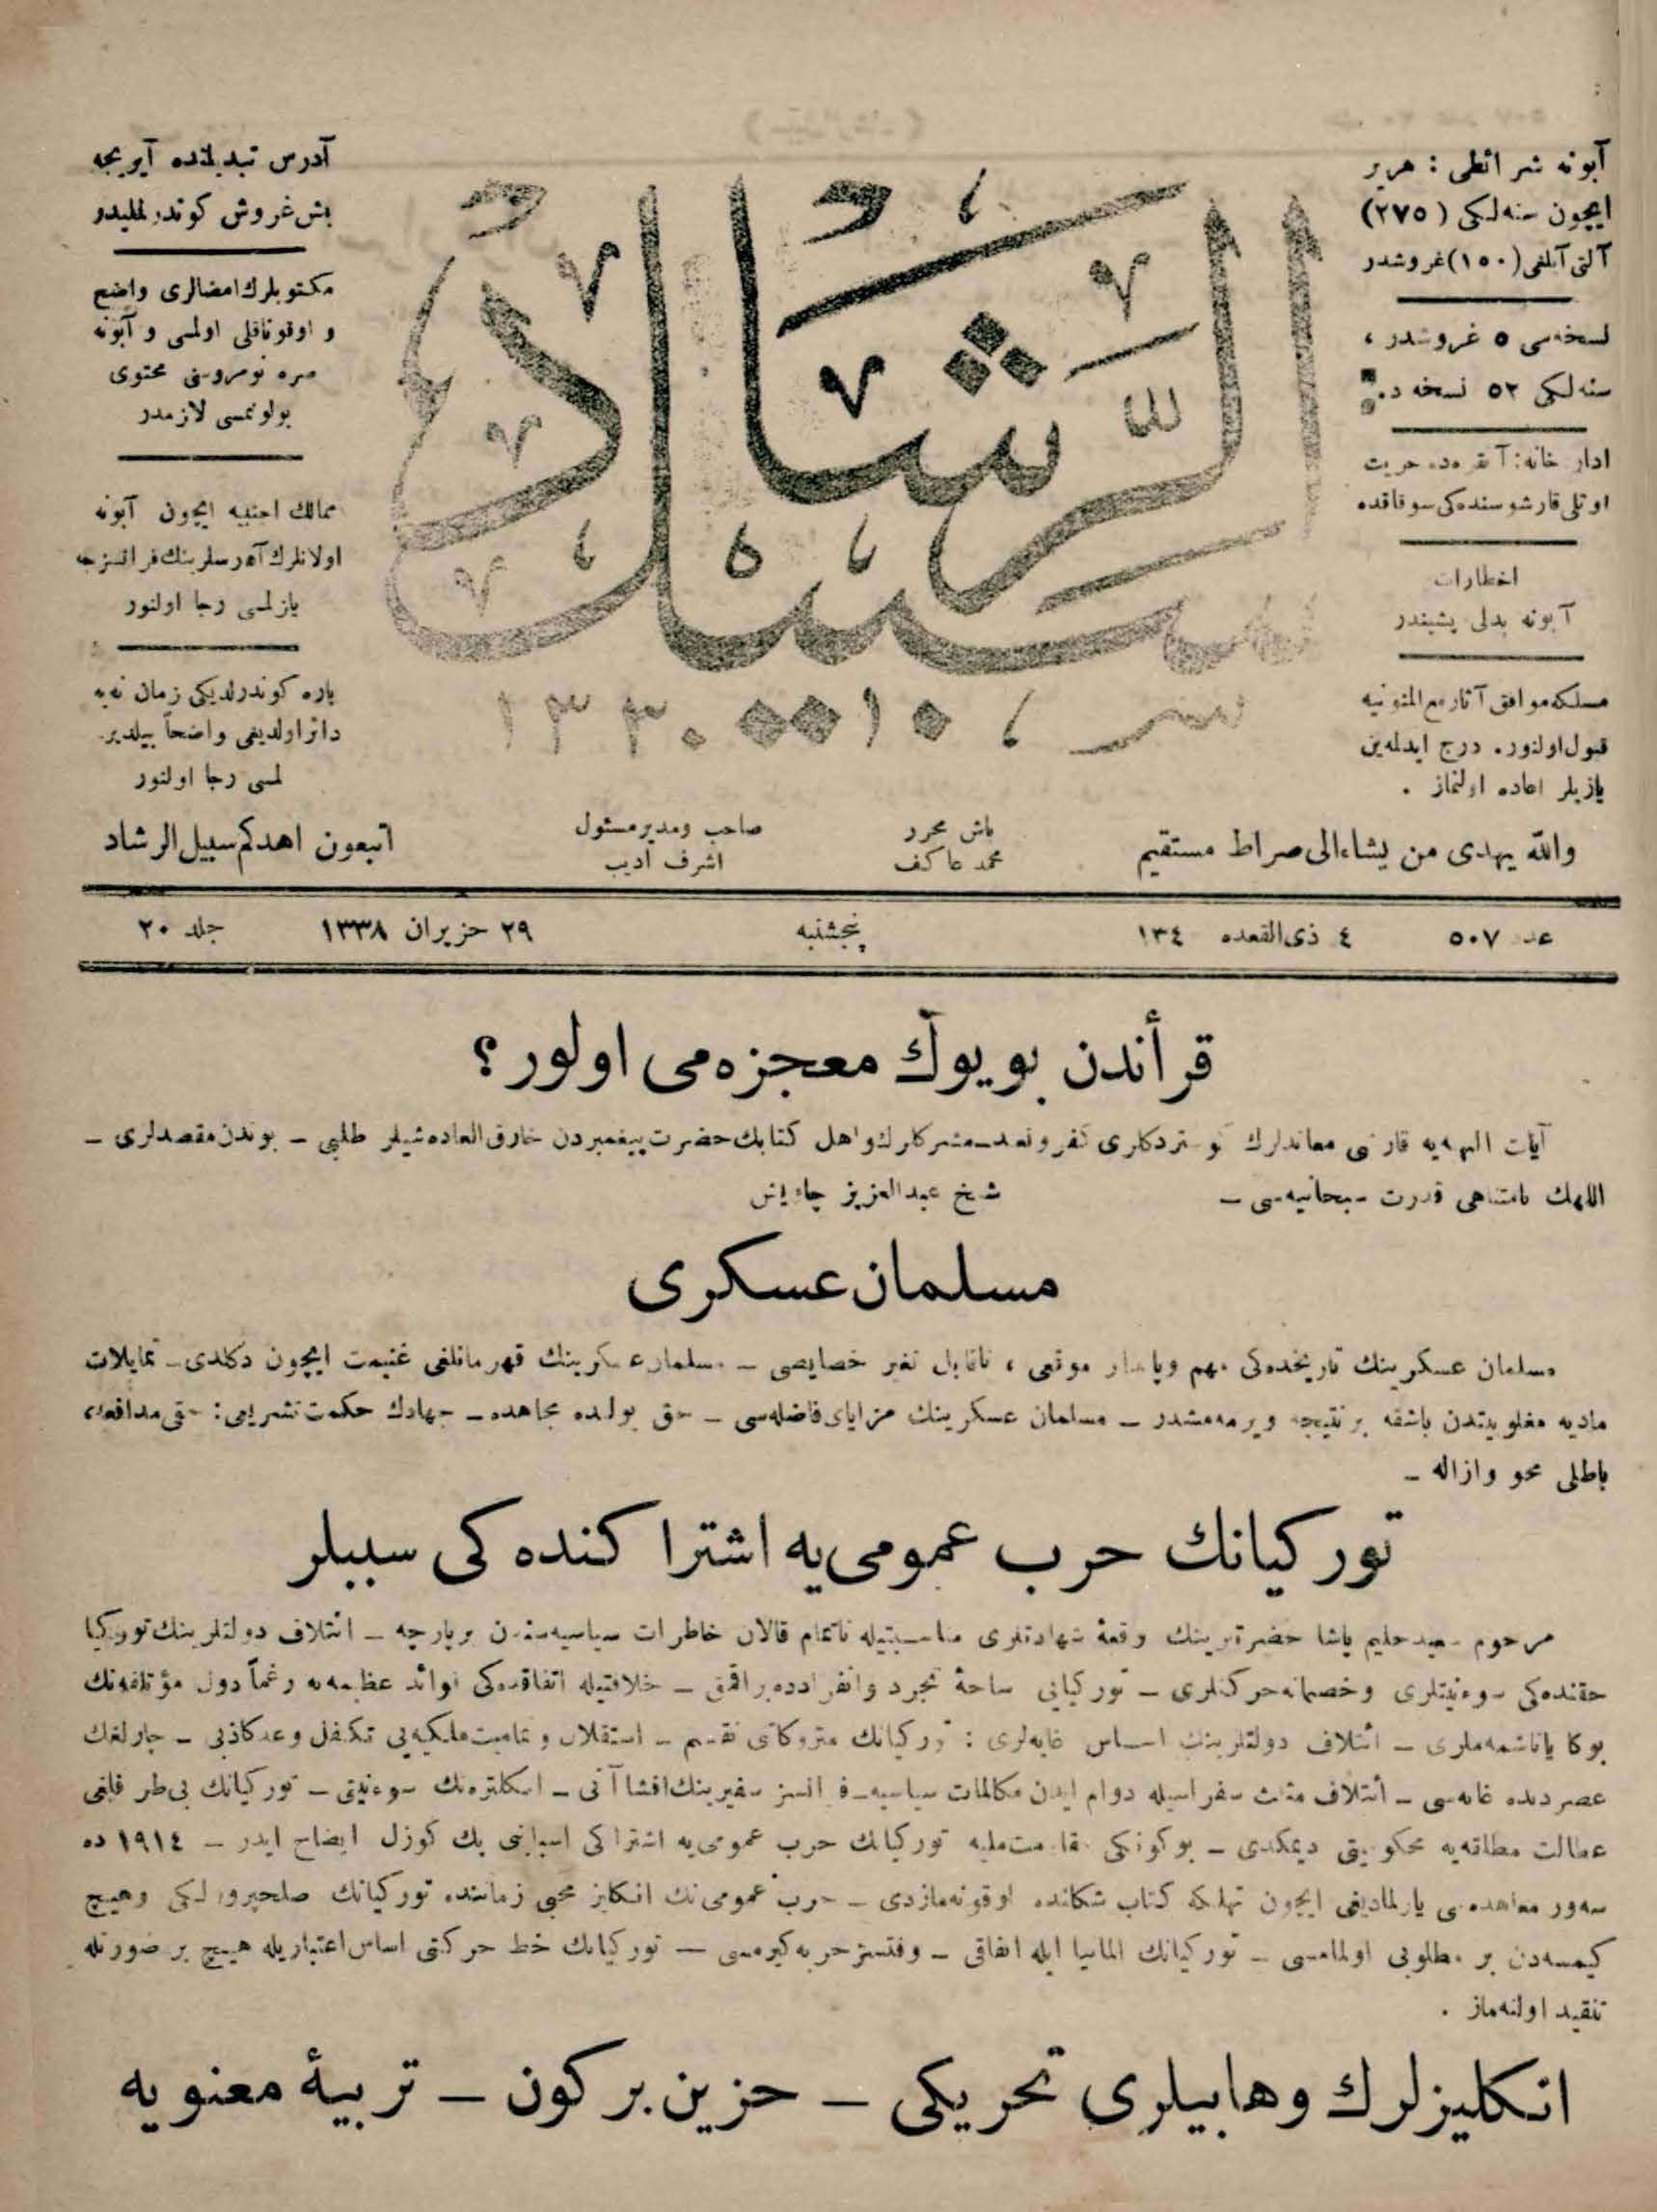 آبونه شرائطی : هر یر
ایچون سنه‌لكی (٢٧٥)
آلتی آیلغی (١٥٠) غروشدر
نسخه‌سی ٥ غروشدر ،
سنه‌لكی ٥٢ نسخه در
اداره خانه : آنقره‌ده حریت
اوتلی قارشوسنده‌كی سوقاقده
اخطارات
آبونه بدلی پشیندر
مسلكه موافق آثار مع الممنونیه
قبول اولنور. درج ایدلمه‌ین
یازیلر اعاده اولنماز .
سبیل الرشاد
١٣٣٠
آدرس تبدیلنده آیریجه
بش غروش كوندرلملیدر
مكتوبلرك امضالری واضح
و اوقوناقلی اولمسی و آبونه
صره نومروسنی محتوی
بولونمسی لازمدر
ممالك اجنبیه ایچون آبونه
اولانلرك آدرسلرینك فرانسزجه
یازلمسی رجا اولنور
پاره كوندرلدیكی زمان نه‌یه
دائر اولدیغی واضحاً بیلدیر-
لمسی رجا اولنور
والله یهدی من یشاء الی صراط مستقیم
باش محرر
محمد عاكف
صاحب ومدیر مسئول
اشرف ادیب
اتبعون اهدكم سبیل الرشاد
عدد ٥٠٧ ٤ ذی القعده ١٣٤ پنجشنبه ٢٩ حزیران ١٣٣٨ جلد ٢٠
قرأندن بویوك معجزه‌می اولور ؟
آیات الهیه‌یه قارشی معاندلرك كوستردكلری كفر و تعند ـ مشركلرك و اهل كتابك حضرت پیغمبردن خارق العاده شیلر طلبی ـ بوندن مقصدلری ـ
اللهك نامتناهی قدرت سبحانیه‌سی ـ شیخ عبدالعزیز چاویش
مسلمان عسكری
مسلمان عسكرینك تاریخده‌كی مهم وپایدار موقعی ، ناقابل تغیر خصایصی ـ مسلمان عسكرینك قهرمانلغی غنیمت ایچون دكلدی ـ تمایلات
مادیه مغلوبیتدن باشقه بر نتیجه ویرمه‌مشدر ـ مسلمان عسكرینك مزایای فاضله‌سی ـ حق یولنده مجاهده ـ جهادك حكمت تشریعی : حقی مدافعه،
باطلی محو وازاله ـ
توركیانك حرب عمومی‌یه اشتراكنده‌كی سببلر
مرحوم سعید حلیم پاشا حضرتلرینك وقعهٔ شهادتلری مناسبتیله ناتمام قالان خاطرات سیاسیه‌سندن بر پارچه ـ ائتلاف دولتلرینك توركیا
حقنده‌كی سوءنیتلری وخصمانه حركتلری ـ توركیایی ساحهٔ تجرد وانفرادده براقمق ـ خلافتیله اتفاقده‌كی فوائد عظیمه‌یه رغماً دول مؤتلفه‌نك
بوكا یاناشمه‌ملری ـ ائتلاف دولتلرینك اساس غایه‌لری : توركیانك متروكاتی تقسیم ـ استقلال و تمامیت ملكیه‌یی تكفل وعد كاذبی ـ چارلغك
عصر دیده غایه‌سی ـ ائتلاف مثلث سفراسیله دوام ایدن مكالمات سیاسیه ـ فرانسز سفیرینك افشاآتی ـ انكلتره‌نك سوءنیتی ـ توركیانك بی طرفلغی
عطالت مطلقه‌یه محكومیتی دیمكدی ـ بوكونكی مقاومت ملیه توركیانك حرب عمومی‌یه اشتراكی اسبابنی پك كوزل ایضاح ایدر ـ ١٩١٤ ده
سه‌ور معاهده‌سی یازلمادیغی ایچون تهلكه كتاب شكلنده اوقونه‌مازدی ـ حرب عمومی‌نك انكلیز محبی زماننده توركیانك صلحپرورلكی وهیچ
كیمسه‌دن بر مطلوبی اولمامسی ـ توركیانك المانیا ایله اتفاقی ـ وقتسز حربه كیرمسی ـ توركیانك خط حركتی اساس اعتباریله هیچ بر صورتله
تنقید اولنه‌ماز .
انكلیزلرك وهابیلری تحریكی ـ حزین بر كون ـ تربیهٔ معنویه